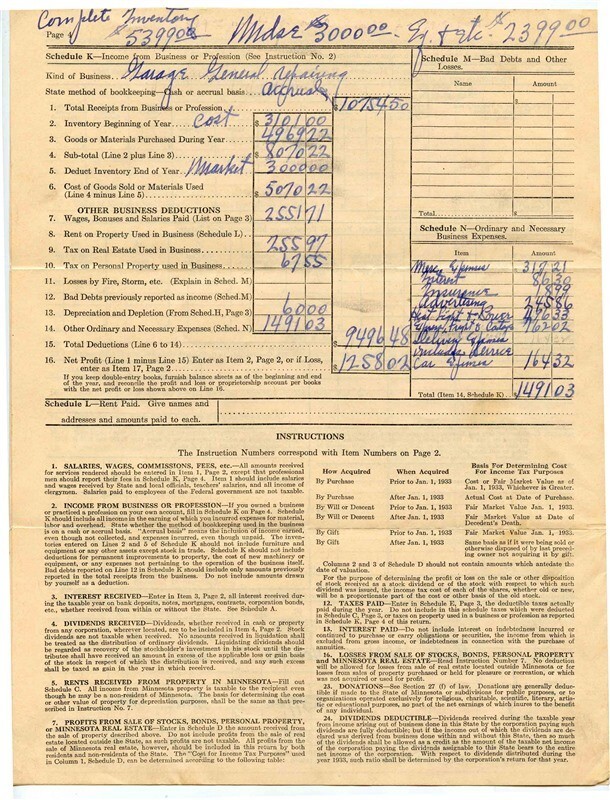 Complete Inventory
Page 4 $5399.00 Mdse $3000.00 - Eq. + Etc. $2399.00
Schedule K—Income from Business or Profession (See Instruction No. 2)
Kind of Business Garage General repairing
State method of bookkeeping—Cash or accrual basis accrual
1. Total Receipts from Business or Profession $ 10754 50
2. Inventory Beginning of Year Cost $ 3101 00
3. Goods or Materials Purchased During Year 4969 22
4. Sub-total (Line 2 plus Line 3) $ 8070 22
5. Deduct Inventory End of Year Market 3000 00
6. Cost of Goods Sold or Materials Used
(Line 4 minus Line 5) $ 5070 22
OTHER BUSINESS DEDUCTIONS
7. Wages, Bonuses and Salaries Paid (List on Page 3) 2551 71
8. Rent on Property Used in Business (Schedule L)
9. Tax on Real Estate Used in Business 255 97
10. Tax on Personal Property used in Business 67 55
11. Losses by Fire, Storm, etc. (Explain in Sched. M)
12. Bad Debts previously reported as income (Sched. M)
13. Depreciation and Depletion (From Sched. H, Page 3) 60 00
14. Other Ordinary and Necessary Expenses (Sched. N) 1491 03
15. Total Deductions (Line 6 to 14) 9496 48
16. Net Profit (Line 1 minus Line 15) Enter as Item 2, Page 2, or if Loss,
enter as Item 17, Page 2 1258 02
If you keep double-entry books, furnish balance sheets as of the beginning and end
of the year, and reconcile the profit and loss or proprietorship account per books
with the net profit or loss shown above on Line 16.
Schedule L—Rent Paid. Give names and
addresses and amounts paid to each.
Schedule M—Bad Debts and Other
Losses.
Name Amount
$
Total $
Schedule N—Ordinary and Necessary
Business Expenses.
Item Amount
Misc. Expense 317 21
Interest 86 30
Insurance 8 99
Advertising 245 86
Heat Light & Power
762 02
Delivery Expense
includes Service
Car Expense 164 32
Total (Item 14, Schedule K) $ 1491 03
INSTRUCTIONS
The Instruction Numbers correspond with Item Numbers on Page 2.
1. SALARIES, WAGES, COMMISSIONS, FEES, etc.—All amounts received
for services rendered should be entered in Item 1, Page 2, except that professional
men should report their fees in Schedule K, Page 4. Item 1 should include salaries
and wages received by State and local officials, teachers' salaries, and all income of
clergymen. Salaries paid to employees of the Federal government are not taxable.
2. INCOME FROM BUSINESS OR PROFESSION—If you owned a business
or practiced a profession on your own account, fill in Schedule K on Page 4. Schedule
K should include all income in the earning of which you incurred expenses for material,
labor and overhead. State whether the method of bookkeeping used in the business
is on a cash or accrual basis. "Accrual basis" means the income earned,
even though not collected, and expenses incurred, even though unpaid. The inven-
tories entered on Lines 2 and 5 of Schedule K should not include furniture and
equipment or any other assets except stock in trade. Schedule K should not include
deductions for permanent improvements to property, the cost of new machinery or
equipment, or any expenses not pertaining to the operation of the business itself.
Bad debts reported on Line 12 in Schedule K should include only amounts previously
reported in the total receipts from the business. Do not include amounts drawn
by yourself as a deduction.
3. INTEREST RECEIVED—Enter in Item 3, Page 2, all interest received dur-
ing the taxable year on bank deposits, notes, mortgages, contracts, corporation bonds,
etc., whether received from within or without the State. See Schedule A.
4. DIVIDENDS RECEIVED—Dividends, whether received in cash or property
from any corporation, wherever located, are to be included in Item 4, Page 2. Stock
dividends are not taxable when received. No amounts received in liquidation shall
be treated as the distribution of ordinary dividends. Liquidating dividends should
be regarded as recovery of the stockholder's investment in his stock until the dis-
tributee shall have received an amount in excess of the applicable loss or gain basis
of the stock in respect of which the distribution is received, and any such excess
shall be taxed as gain in the year in which received.
5. RENTS RECEIVED FROM PROPERTY IN MINNESOTA—Fill out
Schedule C. All income from Minnesota property is taxable to the recipient even
though he may be a non-resident of Minnesota. The basis for determining the cost
or other value of property for depreciation purposes, shall be the same as that pre-
scribed in Instruction No. 7.
7. PROFITS FROM SALE OF STOCKS, BONDS, PERSONAL PROPERTY,
or MINNESOTA REAL ESTATE—Enter in Schedule D the amount received from
the sale of property described above. Do not include profits from the sale of real
estate located outside the State, as such profits are not taxable. All profits from the
sale of Minnesota real estate, however, should be included in this return by both
residents and non-residents of the State. The "Cost for Income Tax Purposes" used
in Column 1, Schedule D, can be determined according to the following table:
How Acquired When Acquired Basis For Determining Cost For Income Tax Purposes
By Purchase Prior to Jan. 1, 1933 Cost or Fair Market Value as of Jan. 1, 1933, Whichever is Greater.
By Purchase After Jan. 1, 1933 Actual Cost at Date of Purchase.
By Will or Descent Prior to Jan. 1, 1933 Fair Market Value Jan. 1, 1933.
By Will or Descent After Jan. 1, 1933 Fair Market Value at Date of Decedent's Death.
By Gift Prior to Jan. 1, 1933 Fair Market Value Jan. 1, 1933.
By Gift After Jan. 1, 1933 Same basis as if it were sold or otherwise disposed of by last preceding owner not acquiring it by gift.
Columns 2 and 3 of Schedule D should not contain amounts which antedate the
date of valuation.
For the purpose of determining the profit or loss on the sale or other disposition
of stock received as a stock dividend or of the stock with respect to which such
dividend was issued, the income tax cost of each of the shares, whether old or new,
will be a proportionate part of the cost or other basis of the old stock.
12. TAXES PAID—Enter in Schedule K, Page 2, the deductible taxes actually
paid during the year. Do not include in this schedule taxes which were deducted
in Schedule C, Page 2, or taxes on property used in a business or profession as reported
in Schedule K, Page 4 of this return.
14. INTEREST PAID—Do not include interest on indebtedness incurred or
continued to purchase or carry obligations or securities, the income from which is
excluded from gross income, or indebtedness in connection with the purchase of
annuities.
16. LOSSES FROM SALE OF STOCKS, BONDS, PERSONAL PROPERTY
and MINNESOTA REAL ESTATE—Read Instruction Number 7. No deduction
will be allowed for losses from sale of real estate located outside Minnesota or for
losses from sales of property purchased or held for pleasure or recreation, or which
was not acquired or used for profit.
23. DONATIONS—See Section 27 (f) of law. Donations are generally deduct-
ible if made to the State of Minnesota or subdivisions for public purposes, or to
organizations operated exclusively for religious, charitable, scientific, literary, artis-
tic or educational purposes, no part of the net earnings of which inures to the benefit
of any individual.
24. DIVIDENDS DEDUCTIBLE—Dividends received during the taxable year
from income arising out of business done in this State by the corporation paying such
dividends are fully deductible; but if the income out of which the dividends are de-
clared was derived from business done within and without this State, then so much
of the dividends shall be allowed as a credit as the amount of the taxable net income
of the corporation paying the dividends assignable to this State bears to the entire
net income of the corporation. With respect to dividends distributed during the
year 1933, such ratio shall be determined by the corporation's return for that year.